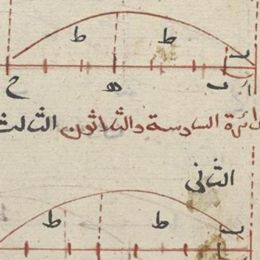 ط ط
ح ه ب أ
ئرة السادسة والثلاثون الثالث
الثاني
ط ط